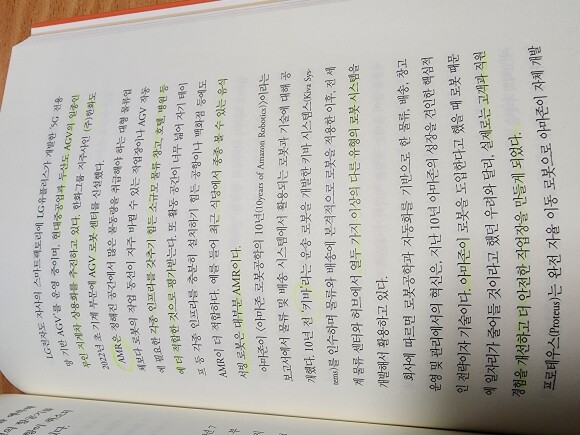 LG전자도 자사의 스마트팩토리에 LG유플러스가 개발한 5G 전용
망 기반 AGV를 운영 중이며, 현대중공업과 두산도 AGV의 일종인
무인 지게차 상용화를 추진하고 있다. 한화그룹 지주사인 (주)한화도
2022년 초 기계 부문에 AGV 로봇 센터를 신설했다.
AMR은 정해진 공간에서 많은 물동량을 취급해야 하는 대형 물류업
체보다 로봇의 작업 동선이 자주 바뀔 수 있는 작업장이나 AGV 작동
에 필요한 각종 인프라를 갖추기 힘든 소규모 물류 창고, 호텔, 병원 등
에 더 적합한 것으로 평가받는다. 또 활동 공간이 너무 넓어 자기 테이
프 등 각종 인프라를 충분히 설치하기 힘든 공항이나 백화점 등에도
AMR이 더 적합하다. 예를 들어 최근 식당에서 종종 볼 수 있는 음식
서빙 로봇은 대부분 AMR이다.
아마존이 〈아마존 로봇공학의 10년(10years of Amazon Robotics)〉이라는
보고서에서 물류 및 배송 시스템에서 활용되는 로봇과 기술에 대해 공
개했다. 10년 전 '키바'라는 운송 로봇을 개발한 키바 시스템스(Kiva Sys-
tems)를 인수하며 물류와 배송에 본격적으로 로봇을 적용한 이후, 전 세
계 물류 센터와 허브에서 열두 가지 이상의 다른 유형의 로봇 시스템을
개발해서 활용하고 있다.
회사에 따르면 로봇공학과 자동화를 기반으로 한 물류, 배송, 창고
운영 및 관리에서의 혁신은, 지난 10년 아마존의 성장을 견인한 핵심적
인 전략이자 기술이다. 아마존이 로봇을 도입한다고 했을 때 로봇 때문
에 일자리가 줄어들 것이라고 했던 우려와 달리, 실제로는 고객과 직원
경험을 개선하고 더 안전한 작업장을 만들게 되었다.
프로테우스(Proteus)는 완전 자율 이동 로봇으로 아마존이 자체 개발